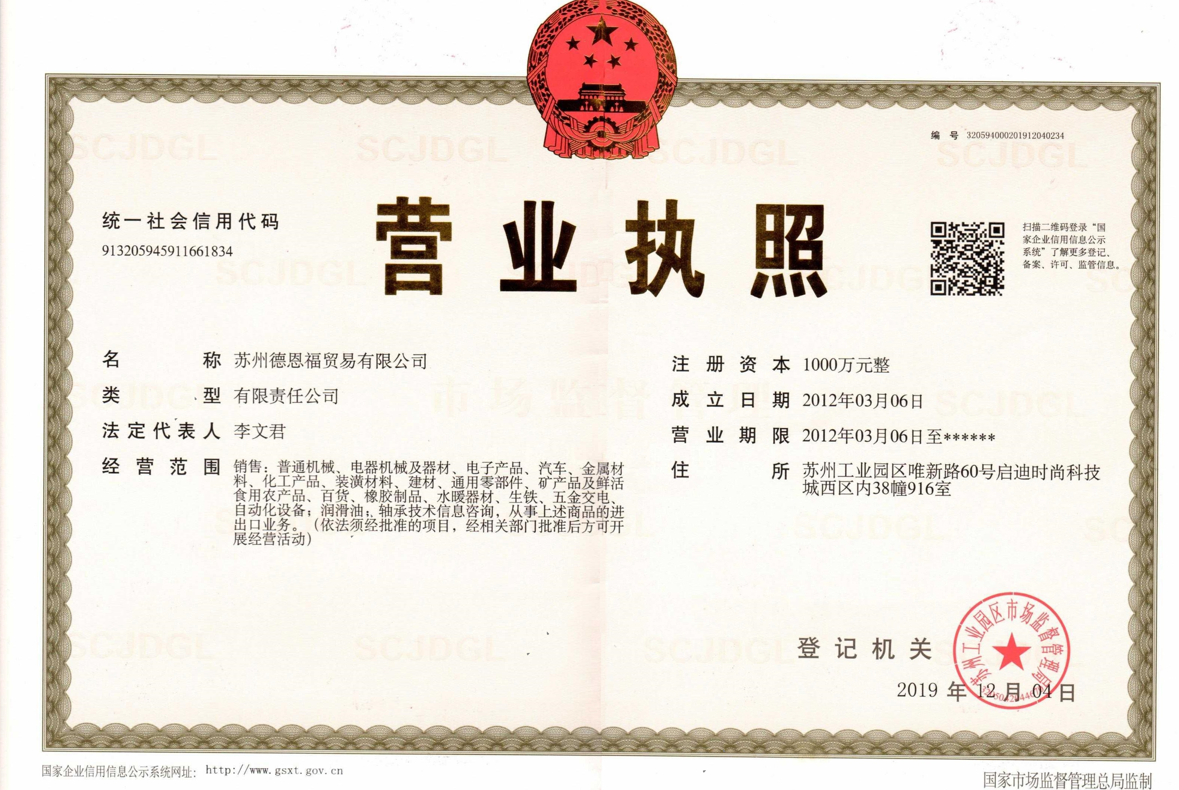 编 号 320594000201912040234
统一社会信用代码
913205945911661834
营业执照
扫描二维码登录“国
家企业信用信息公示
系统”了解更多登记、
备案、许可、监管信息。
名 称 苏州德恩福贸易有限公司
类 型 有限责任公司
法定代表人 李文君
经营范围 销售：普通机械、电器机械及器材、电子产品、汽车、金属材
料、化工产品、装潢材料、建材、通用零部件、矿产品及鲜活
食用农产品、百货、橡胶制品、水暖器材、生铁、五金交电、
自动化设备；润滑油；轴承技术信息咨询，从事上述商品的进
出口业务。（依法须经批准的项目，经相关部门批准后方可开
展经营活动）
注册资本 1000万元整
成立日期 2012年03月06日
营业期限 2012年03月06日至******
住 所 苏州工业园区唯新路60号启迪时尚科技
城西区内38幢916室
登记机关
苏州工业园区市场监督管理局
2019 年 12 月 04 日
国家企业信用信息公示系统网址： http://www.gsxt.gov.cn
国家市场监督管理总局监制
SCJDGL
市场监督管理